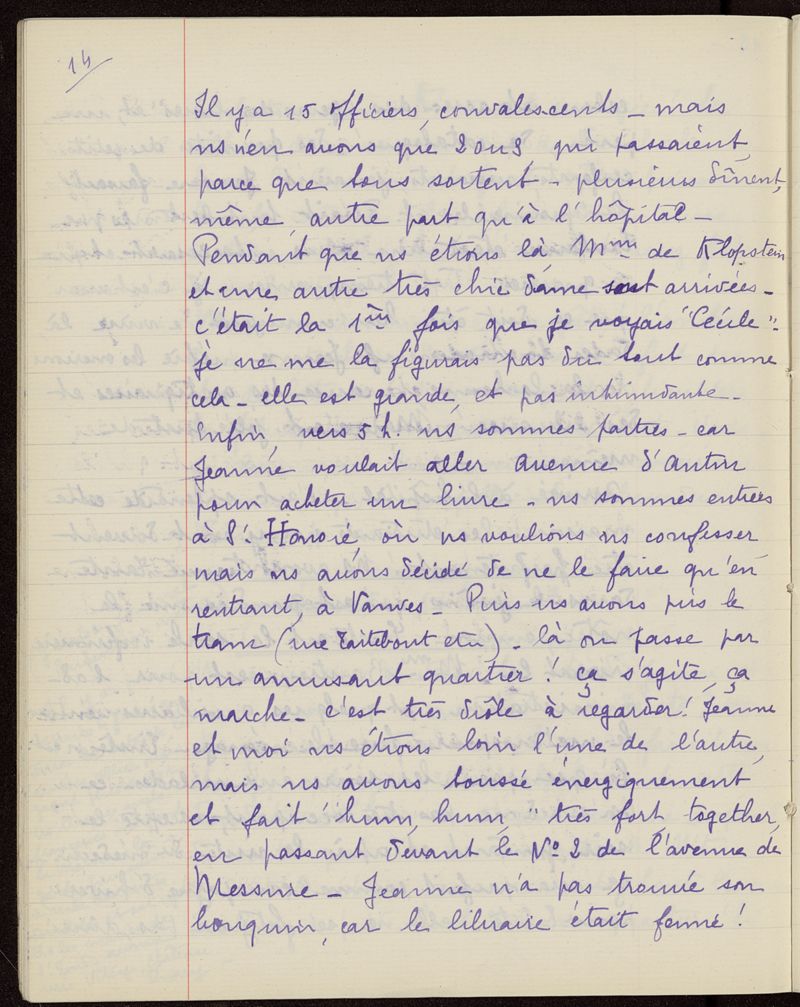 14
Il y a 15 officiers, convalescents – mais
ns n'en avons que 2 ou 3, qui passaient,
parce que tous sortent – plusieurs dînent,
même, autre part qu'à l'hôpital –
Pendant que ns étions là, Mme de Klopstein
et une autre très chic dame sont arrivées –
c'était la 1ère fois que je voyais "Cécile" –
je ne me la figurais pas du tout comme
cela – elle est grande, et pas intimidante –
Enfin, vers 5 h. ns sommes parties – car
Jeanne voulait aller avenue d'Antin
pour acheter un livre – ns sommes entrées
à St Honoré, où ns voulions ns confesser
mais ns avons décidé de ne le faire qu'en
rentrant, à Vanves – Puis ns avons pris le
tram (rue Taitbout etc) – là on passe par
un amusant quartier ! ça s'agite, ça
marche – c'est très drôle à regarder ! Jeanne
et moi ns étions loin l'une de l'autre,
mais ns avons toussé énergiquement
et fait "hum, hum," très fort, together,
en passant devant le No 2 de l'avenue de
Messine – Jeanne n'a pas trouvé son
bouquin, car le libraire était fermé !